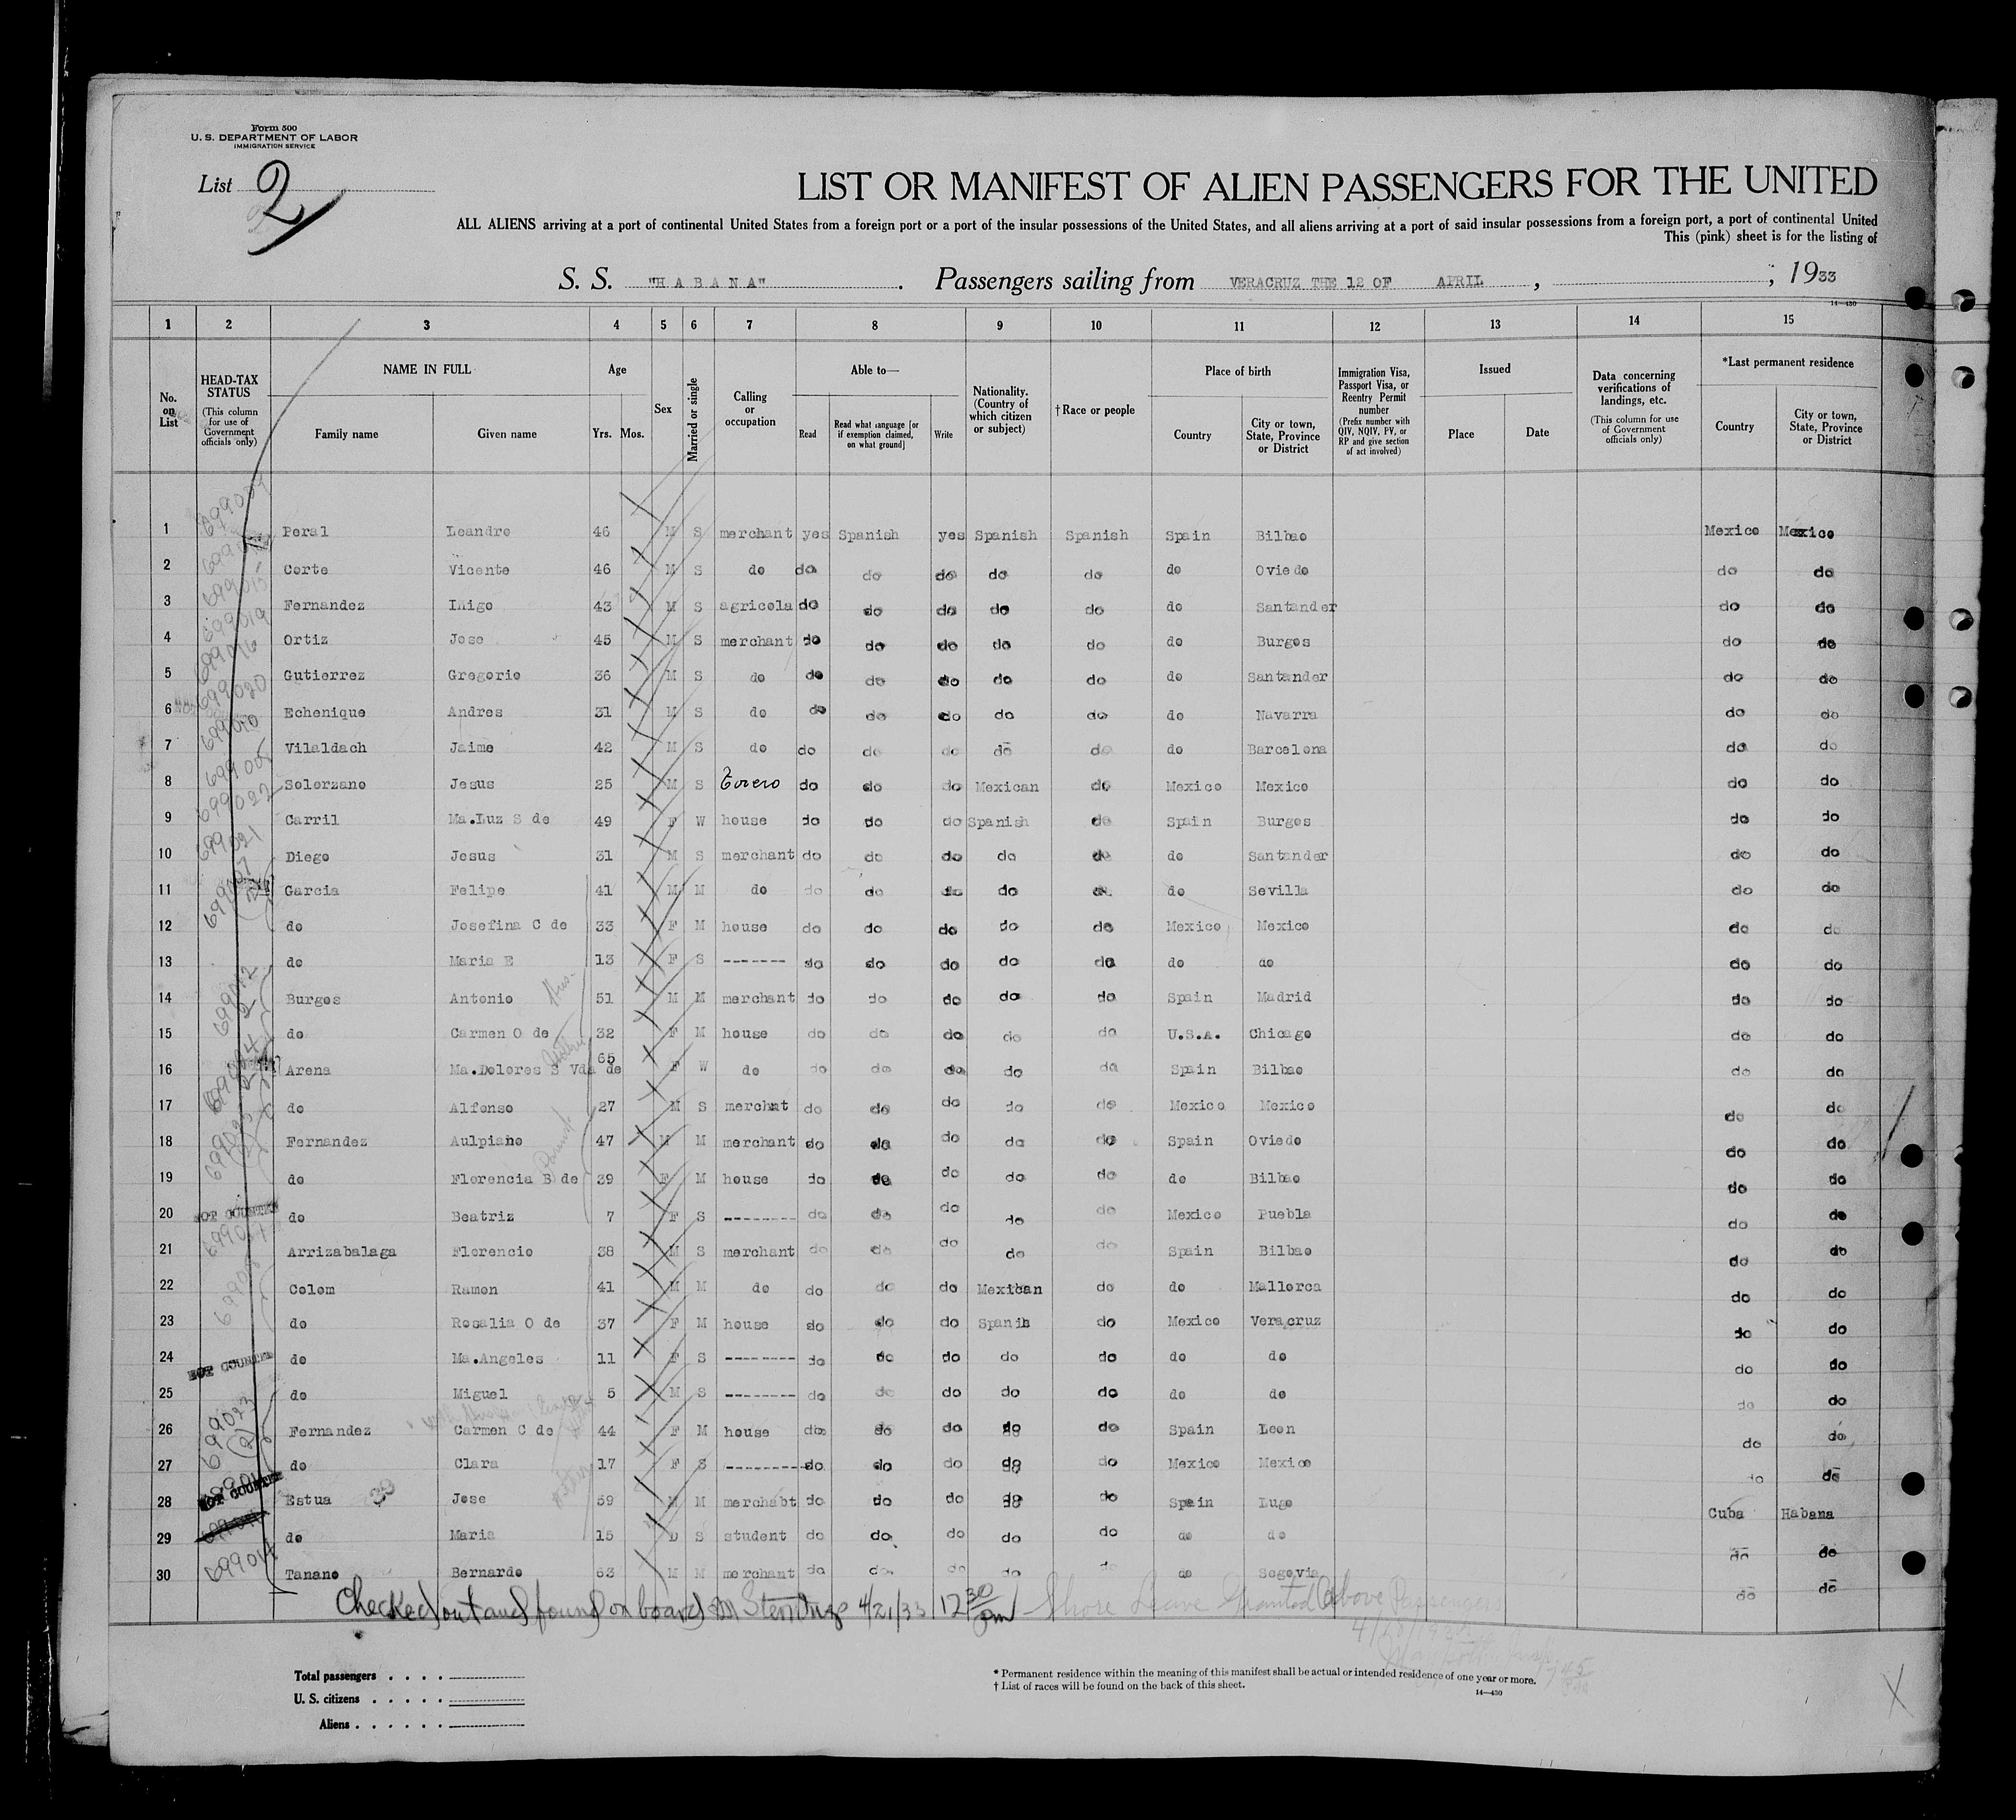 Form 500
U. S. DEPARTMENT OF LABOR
IMMIGRATION SERVICE
List 2
LIST OR MANIFEST OF ALIEN PASSENGERS FOR THE UNITED
ALL ALIENS arriving at a port of continental United States from a foreign port or a port of the insular possessions of the United States, and all aliens arriving at a port of said insular possessions from a foreign port, a port of continental United
This (pink) sheet is for the listing of
S. S. "H A B A N A". Passengers sailing from VERACRUZ THE 12 OF APRIL, ; 1933
14—430
1 2 3 4 5 6 7 8 9 10 11 12 13 14 15
No. on List
HEAD-TAX STATUS (This column for use of Government officials only)
NAME IN FULL
Family name
Given name
Age
Yrs. Mos.
Sex
Married or single
Calling or occupation
Able to—
Read
Read what language [or if exemption claimed, on what ground]
Write
Nationality. (Country of which citizen or subject)
†Race or people
Place of birth
Country
City or town, State, Province or District
Immigration Visa, Passport Visa, or Reentry Permit number (Prefix number with QIV, NQIV, PV, or RP and give section of act involved)
Issued
Place
Date
Data concerning verifications of landings, etc. (This column for use of Government officials only)
*Last permanent residence
Country
City or town, State, Province or District
1 Peral Leandro 46 M S merchant yes Spanish yes Spanish Spanish Spain Bilbao Mexico Mexico
2 Corte Vicente 46 M S do do do do do do do Oviedo do do
3 Fernandez Iñigo 43 M S agricola do do do do do do Santander do do
4 Ortiz Jose 45 M S merchant do do do do do do Burgos do do
5 Gutierrez Gregorio 36 M S do do do do do do do Santander do do
6 Echenique Andres 31 M S do do do do do do do Navarra do do
7 Vilaldach Jaime 42 M S do do do do do do do Barcelona do do
8 Solorzano Jesus 25 M S Torero do do do Mexican do Mexico Mexico do do
9 Carril Ma.Luz S de 49 F W house do do do Spanish do Spain Burgos do do
10 Diego Jesus 31 M S merchant do do do do do do Santander do do
11 Garcia Felipe 41 M M do do do do do do do Sevilla do do
12 do Josefina C de 33 F M house do do do do do Mexico Mexico do do
13 do Maria E 13 F S ------- do do do do do do do do do
14 Burgos Antonio 51 M M merchant do do do do do Spain Madrid do do
15 do Carmen O de 32 F M house do do do do do U.S.A. Chicago do do
16 Arena Ma.Dolores S Vda de 65 F W do do do do do do Spain Bilbao do do
17 do Alfonso 27 M S merchat do do do do do Mexico Mexico do do
18 Fernandez Aulpiano 47 M M merchant do do do do do Spain Oviedo do do
19 do Florencia B de 39 F M house do do do do do do Bilbao do do
20 NOT COUNTED do Beatriz 7 F S -------- do do do do do Mexico Puebla do do
21 Arrizabalaga Florencio 38 M S merchant do do do do do Spain Bilbao do do
22 Colom Ramon 41 M M do do do do Mexican do do Mallorca do do
23 do Rosalia O de 37 F M house do do do Spanih do Mexico Veracruz do do
24 NOT COUNTED do Ma.Angeles 11 F S -------- do do do do do do do do do
25 do Miguel 5 M S -------- do do do do do do do do do
26 Fernandez Carmen C de 44 F M house do do do do do Spain Leon do do
27 do Clara 17 F S --------- do do do do do Mexico Mexico do do
28 NOT COUNTED Estua 30 Jose 59 M M merchabt do do do do do Spain Lugo Cuba Habana
29 do Maria 15 D S student do do do do do do do do do
30 699014 Tanano Bernardo 53 M M merchant do do do do do do Segovia do do
Checked out and found on board 4/21/33 12 30 pm Shore Leave Granted Above Passengers
Total passengers . . . .
U. S. citizens . . . . .
Aliens . . . . . .
* Permanent residence within the meaning of this manifest shall be actual or intended residence of one year or more.
† List of races will be found on the back of this sheet.
14—430